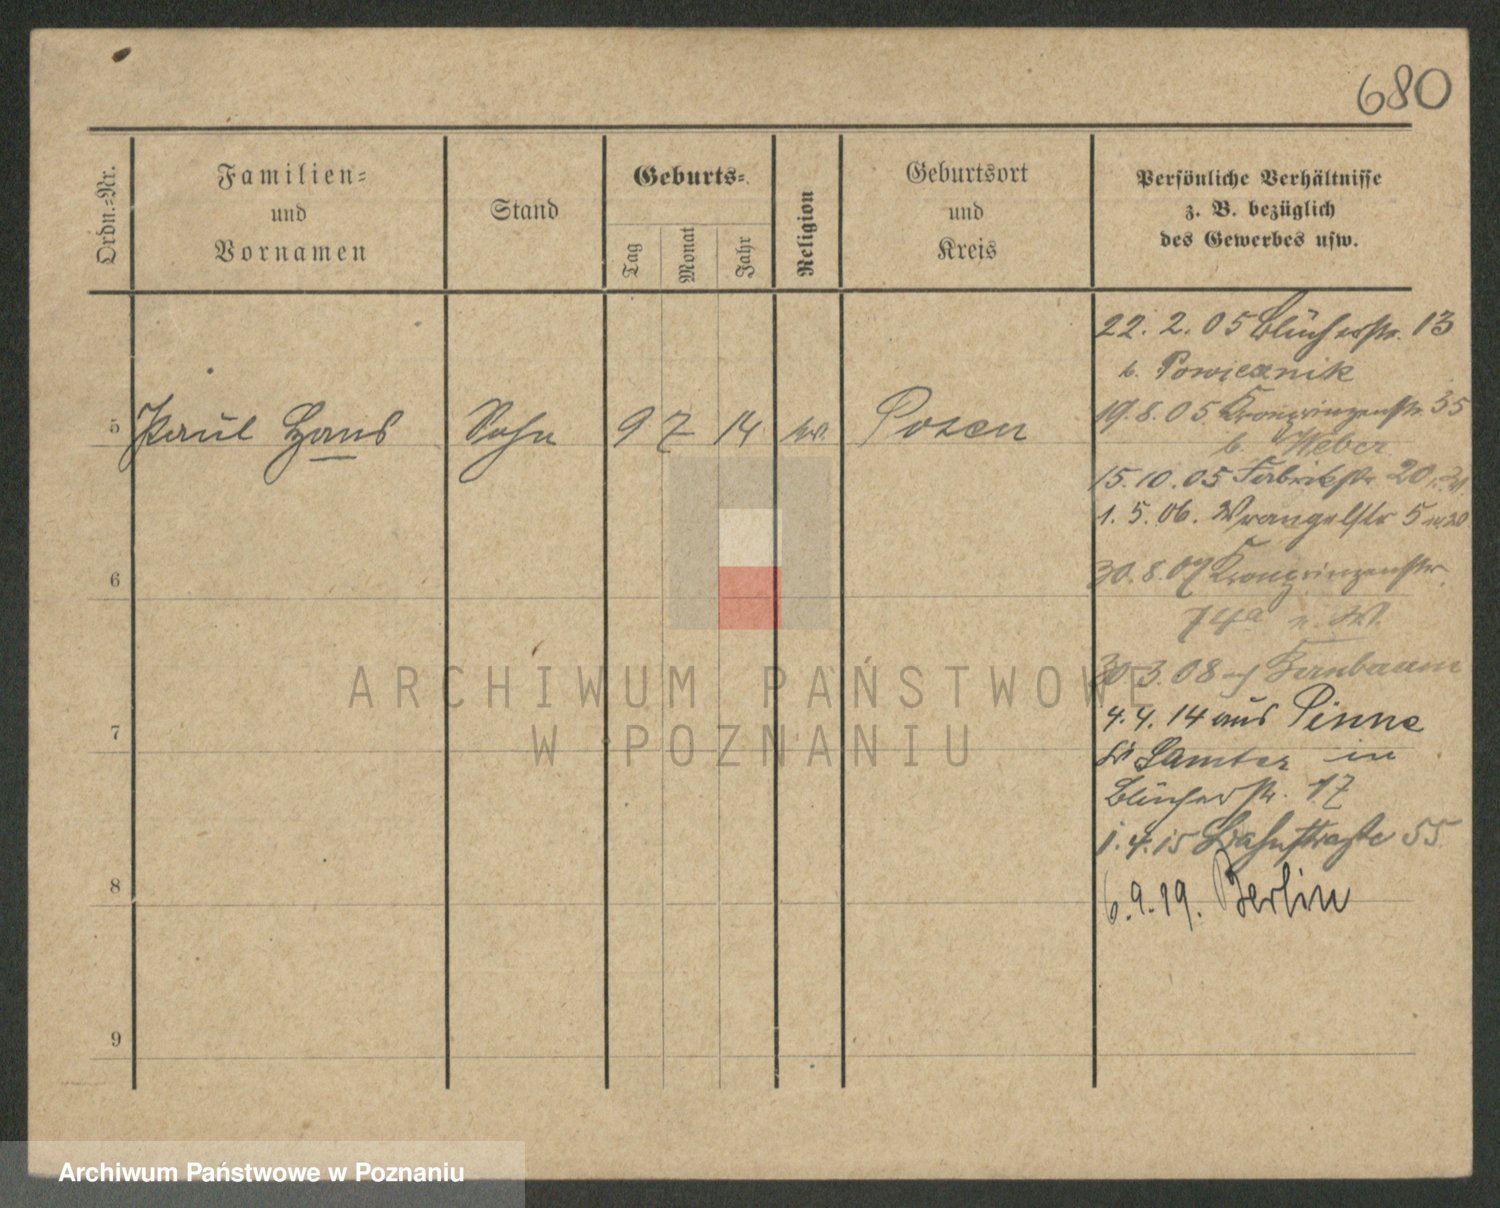 680
Ordn.=Nr.
Familien=
und
Vornamen
Stand
Geburts=
Tag
Monat
Jahr
Religion
Geburtsort
und
Kreis
Persönliche Verhältnisse
z. B. bezüglich
des Gewerbes usw.
22. 2. 05 Blücherstr. 13
b. Powiecznik
19. 8. 05 Kronprinzenstr. 35
b. Weber
5 Paul Hans Sohn 9 7 14 ev. Posen
15. 10. 05 Fabrikstr. 20
1. 5. 06. Wrangelstr 5
6
30. 8. 07 Kronprinzenstr.
74a
30. 3. 08 Fernbaum
7
4. 4. 14 aus Pinne
Kr Samter in
Blücherstr. 17
1. 4. 15 Bahnstraße 55
8
6. 9. 19. Berlin
9
ARCHIWUM PAŃSTWOWE
W POZNANIU
Archiwum Państwowe w Poznaniu